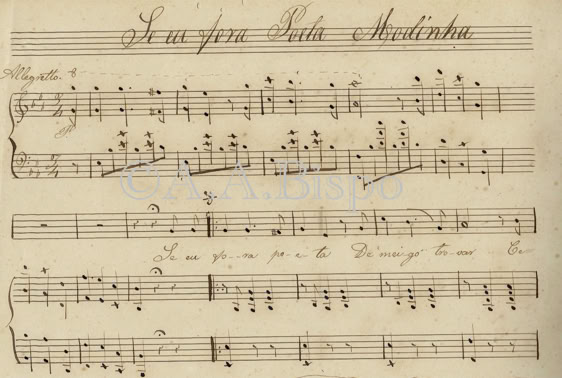 Se eu fora Poeta Modinha
Allegretto. 8
©A.A.Bispo
Se eu fo--ra po-e-ta De mei-go tro-var